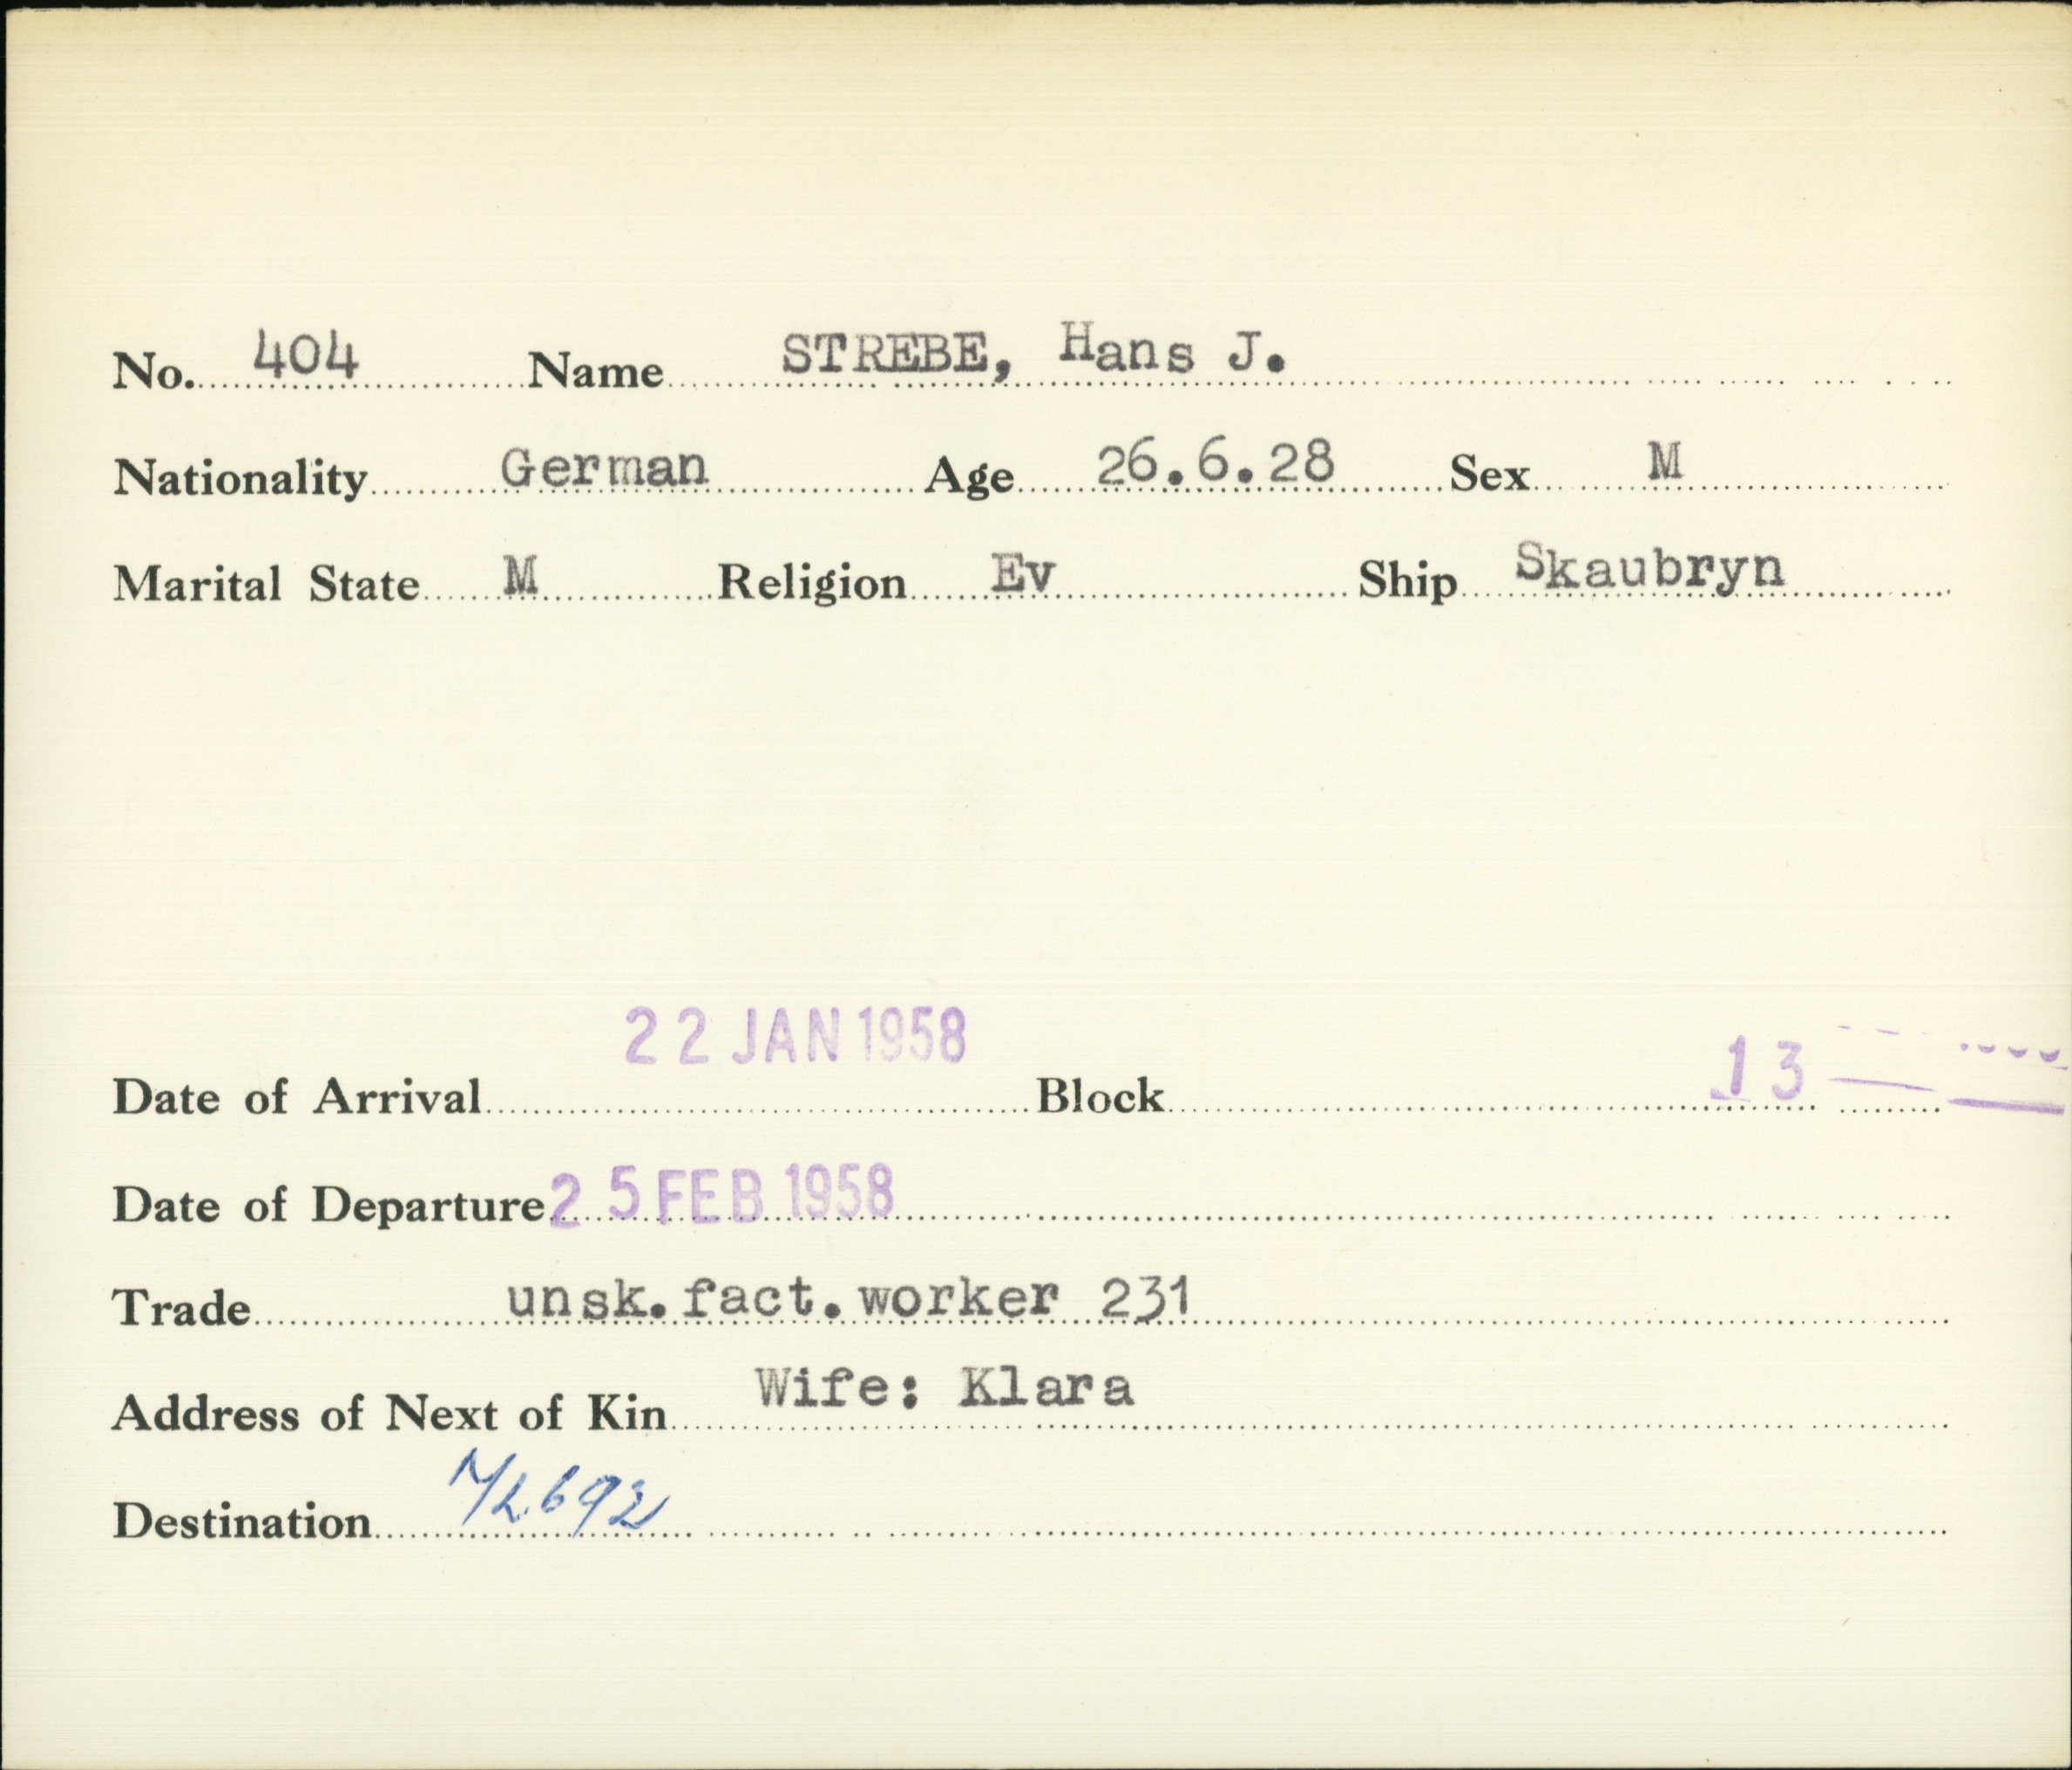 No. 404 Name STREBE, Hans J.
Nationality German Age 26.6.28 Sex M
Marital State M Religion Ev Ship Skaubryn
22 JAN 1958 13
Date of Arrival Block
Date of Departure 25 FEB 1958
Trade unsk.fact.worker 231
Address of Next of Kin Wife: Klara
Destination